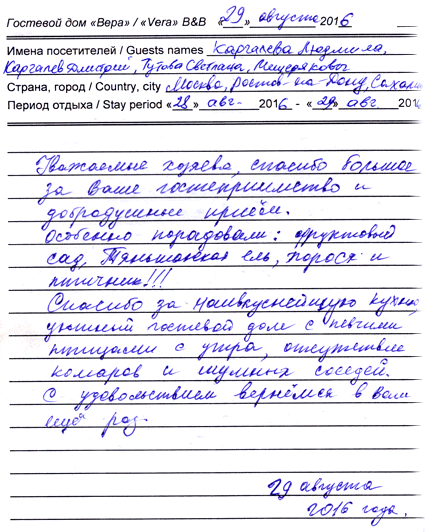 Гостевой дом «Вера» / «Vera» B&B «29» августа 2016
Имена посетителей / Guests names Каргалева Людмила,
Каргалев Дмитрий, Тутова Светлана, Мещеряковы
Страна, город / Country, city Москва, Ростов-на-Дону, Сахалин
Период отдыха / Stay period «28» авг. 2016 - «29» авг 2016
Уважаемые хозяева, спасибо большое
за Ваше гостеприимство и
добродушный приём.
Особенно порадовали: фруктовый
сад, Тяньшанская ель, порося и
птичник!!!
Спасибо за наивкуснейшую кухню,
уютный гостевой дом с певчими
птицами с утра, отсутствие
комаров и шумных соседей.
С удовольствием вернёмся к Вам
ещё раз.
29 августа
2016 года.